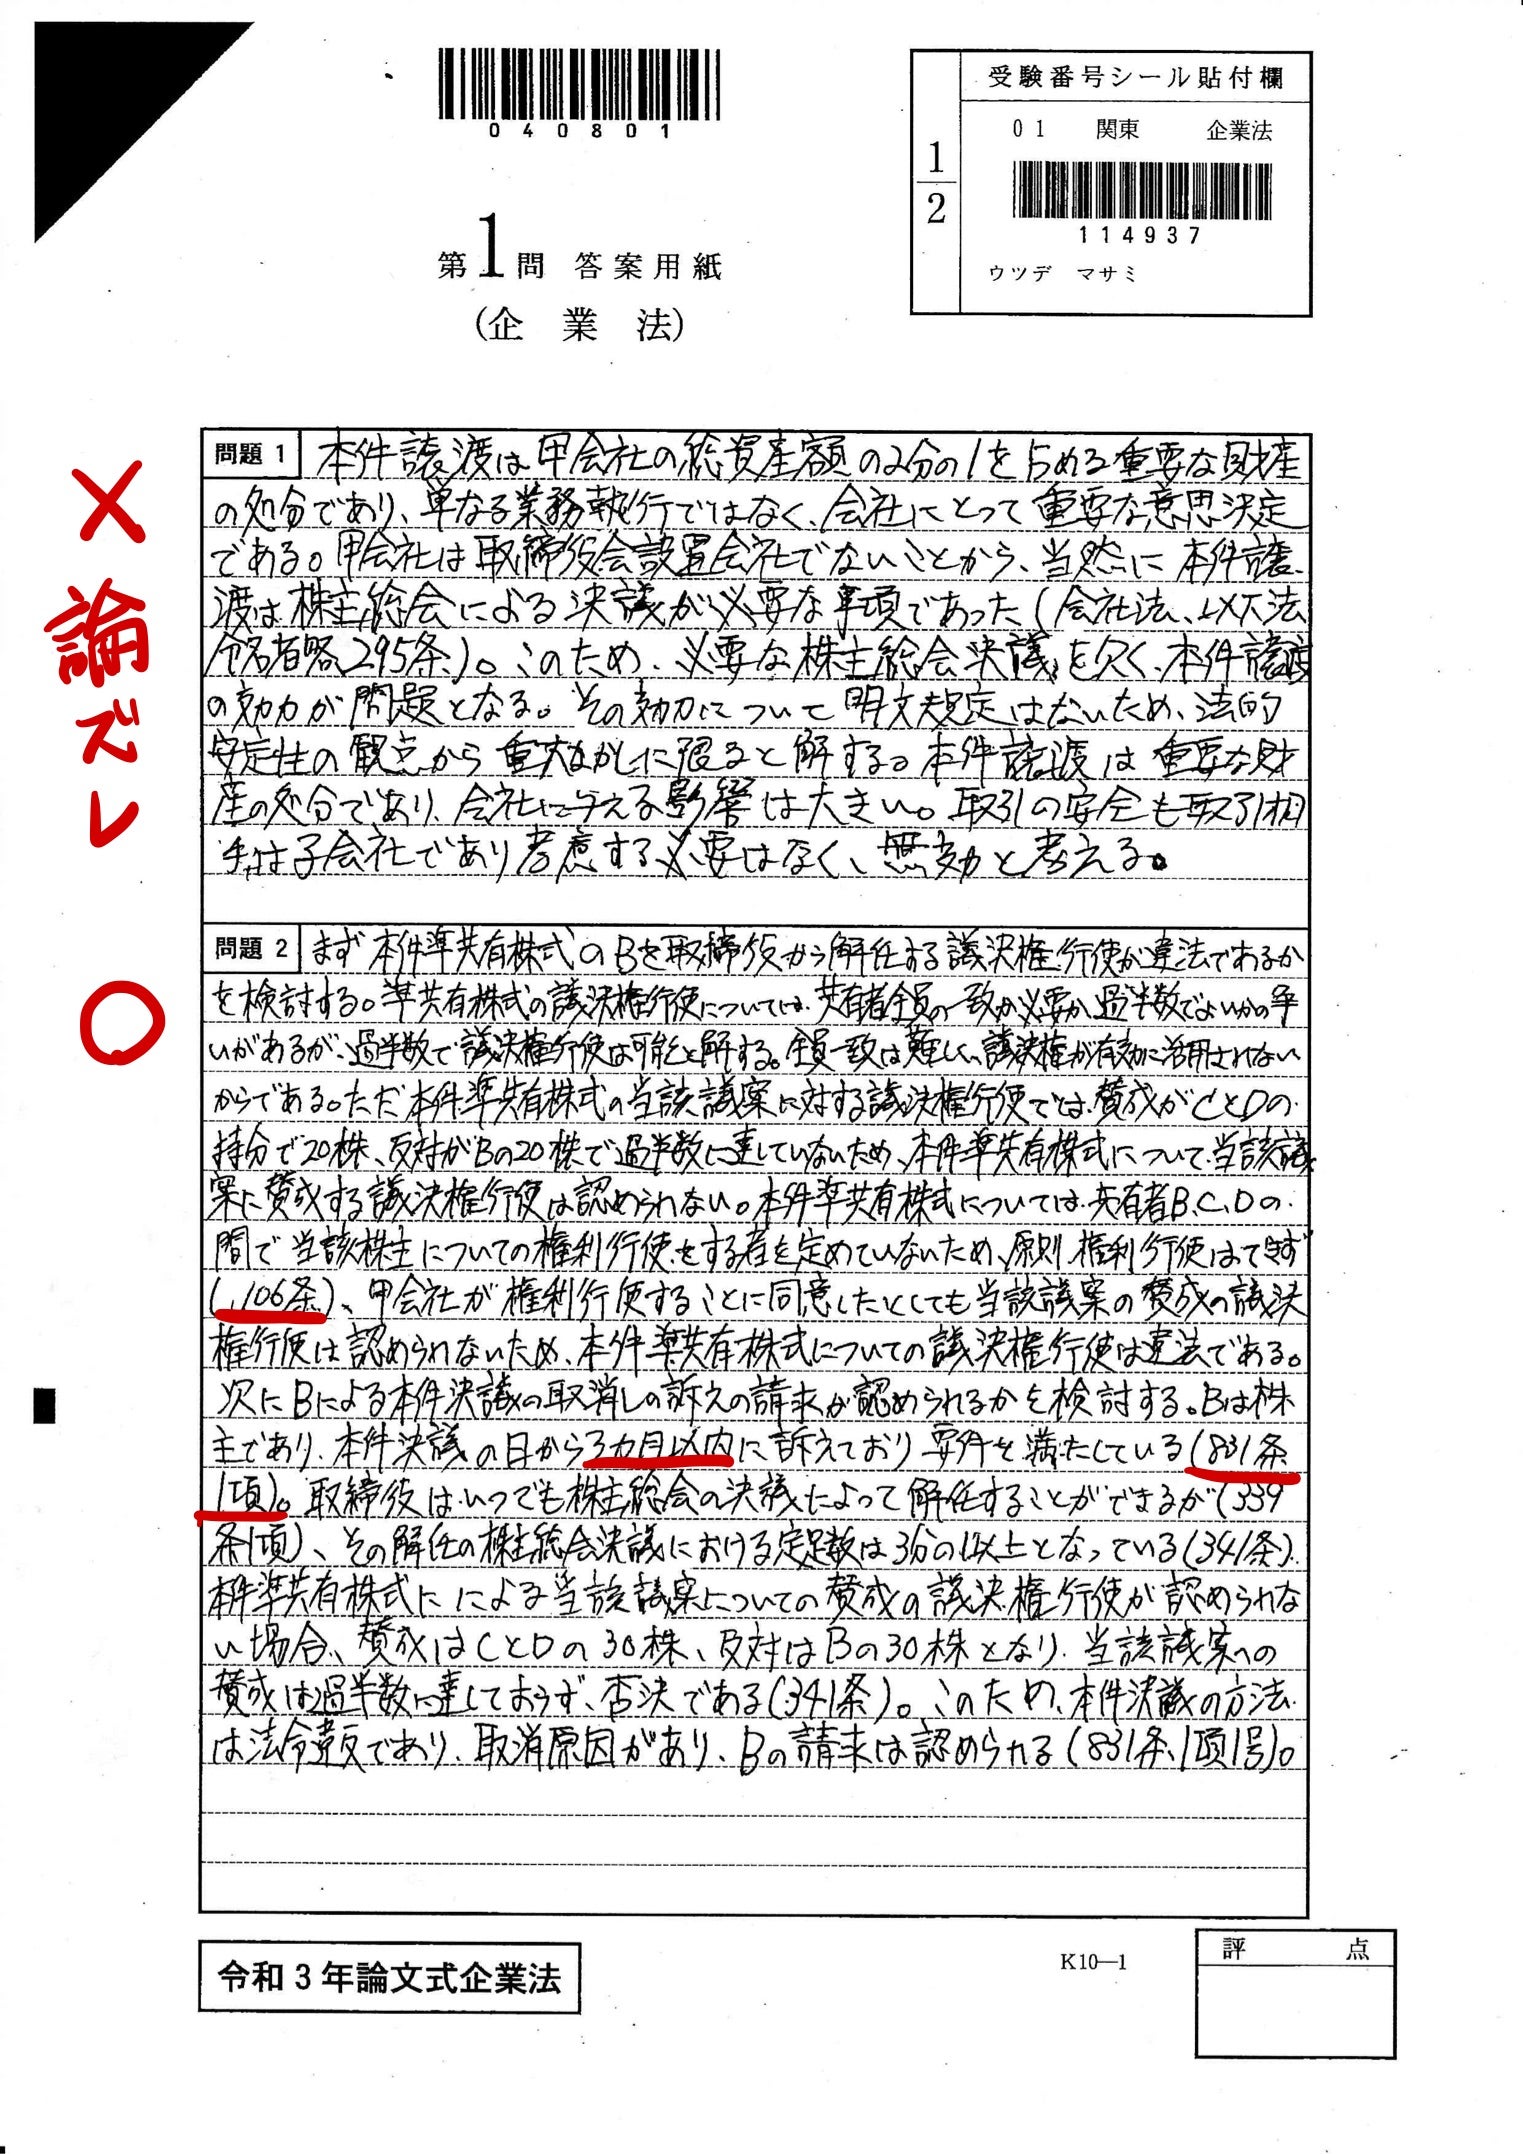 040801
受験番号シール貼付欄
1/2
01 関東 企業法
114937
ウツデ マサミ
第1問 答案用紙
(企業法)
×論ズレ
問題1 本件譲渡は甲会社の総資産額の2分の1を占める重要な財産
の処分であり、単なる業務執行ではなく、会社にとって重要な意思決定
である。甲会社は取締役会設置会社でないことから、当然に本件譲
渡は株主総会による決議が必要な事項であった(会社法、以下法
令名省略、295条)。このため、必要な株主総会決議を欠く、本件譲渡
の効力が問題となる。その効力について明文規定はないため、法的
安定性の観点から重大なかしに限ると解する。本件譲渡は重要な財
産の処分であり、会社に与える影響は大きい。取引の安全も取引相
手は子会社であり考慮する必要はなく、無効と考える。
○
問題2 まず本件準共有株式のBを取締役から解任する議決権行使が違法であるか
を検討する。準共有株式の議決権行使については、共有者全員の一致が必要か、過半数でよいかの争
いがあるが、過半数で議決権行使は可能と解する。全員一致は難しく、議決権が有効に活用されない
からである。ただ本件準共有株式の当該議案に対する議決権行使では、賛成がCとDの
持分で20株、反対がBの20株で過半数に達していないため、本件準共有株式について当該議
案に賛成する議決権行使は認められない。本件準共有株式については、共有者B、C、Dの
間で当該株主についての権利行使をする者を定めていないため、原則、権利行使はできず
(106条)、甲会社が権利行使することに同意したとしても当該議案の賛成の議決
権行使は認められないため、本件準共有株式についての議決権行使は違法である。
次にBによる本件決議の取消しの訴えの請求が認められるかを検討する。Bは株
主であり、本件決議の日から3カ月以内に訴えており要件を満たしている(831条
1項)。取締役はいつでも株主総会の決議によって解任することができるが(339
条1項)、その解任の株主総会決議における定足数は3分の1以上となっている(341条)。
本件準共有株式にによる当該議案についての賛成の議決権行使が認められな
い場合、賛成はCとDの30株、反対はBの30株となり、当該議案への
賛成は過半数に達しておらず、否決である(341条)。このため、本件決議の方法
は法令違反であり、取消原因があり、Bの請求は認められる(831条1項1号)。
令和3年論文式企業法
K10—1
評点